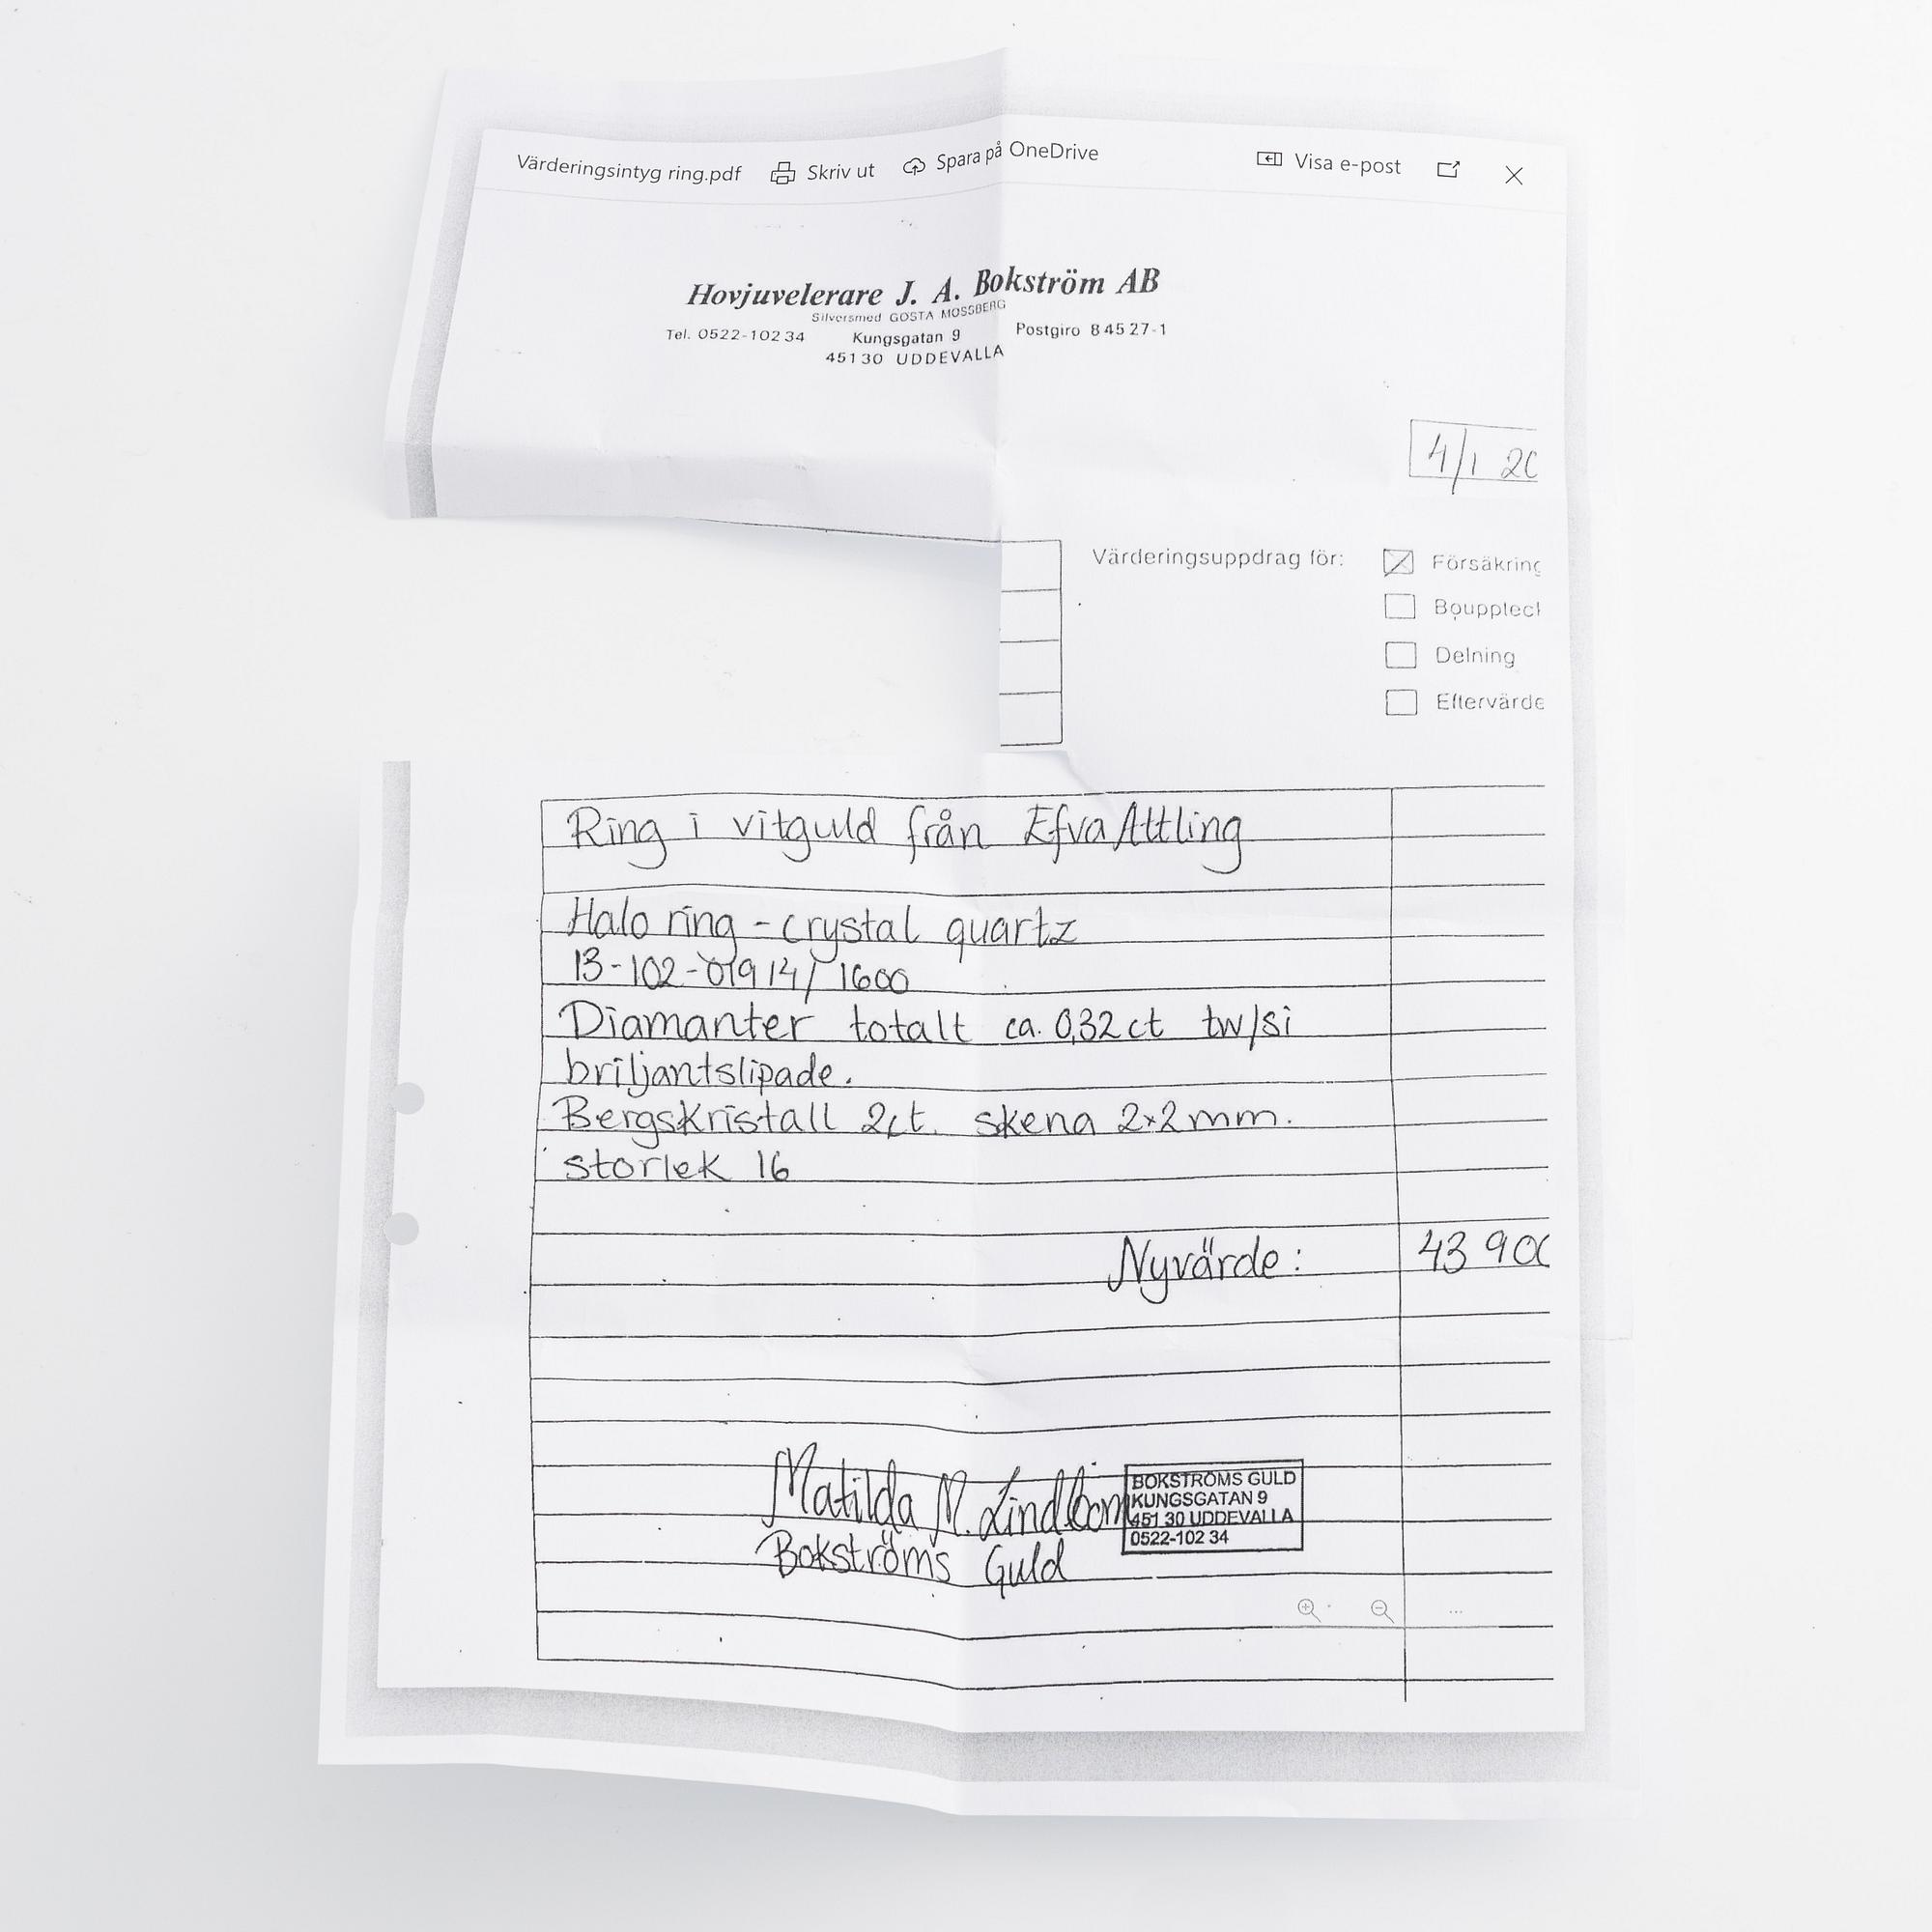 Värderingsintyg ring.pdf Skriv ut Spara på OneDrive Visa e-post
Hovjuvelerare J. A. Bokström AB
Silversmed GÖSTA MOSSBERG
Tel. 0522-102 34 Kungsgatan 9 Postgiro 8 45 27-1
451 30 UDDEVALLA
4/1 20
Värderingsuppdrag för: Försäkring
Bouppteck
Delning
Eftervärde
Ring i vitguld från Efva Attling
Halo ring - crystal quartz
13-102-01914/1600
Diamanter totalt ca. 0,32 ct tw/si
briljantslipade.
Bergskristall 2ct. skena 2x2mm.
storlek 16
Nyvärde: 43 900
Matilda M. Lindbom
Bokströms Guld
BOKSTRÖMS GULD
KUNGSGATAN 9
451 30 UDDEVALLA
0522-102 34